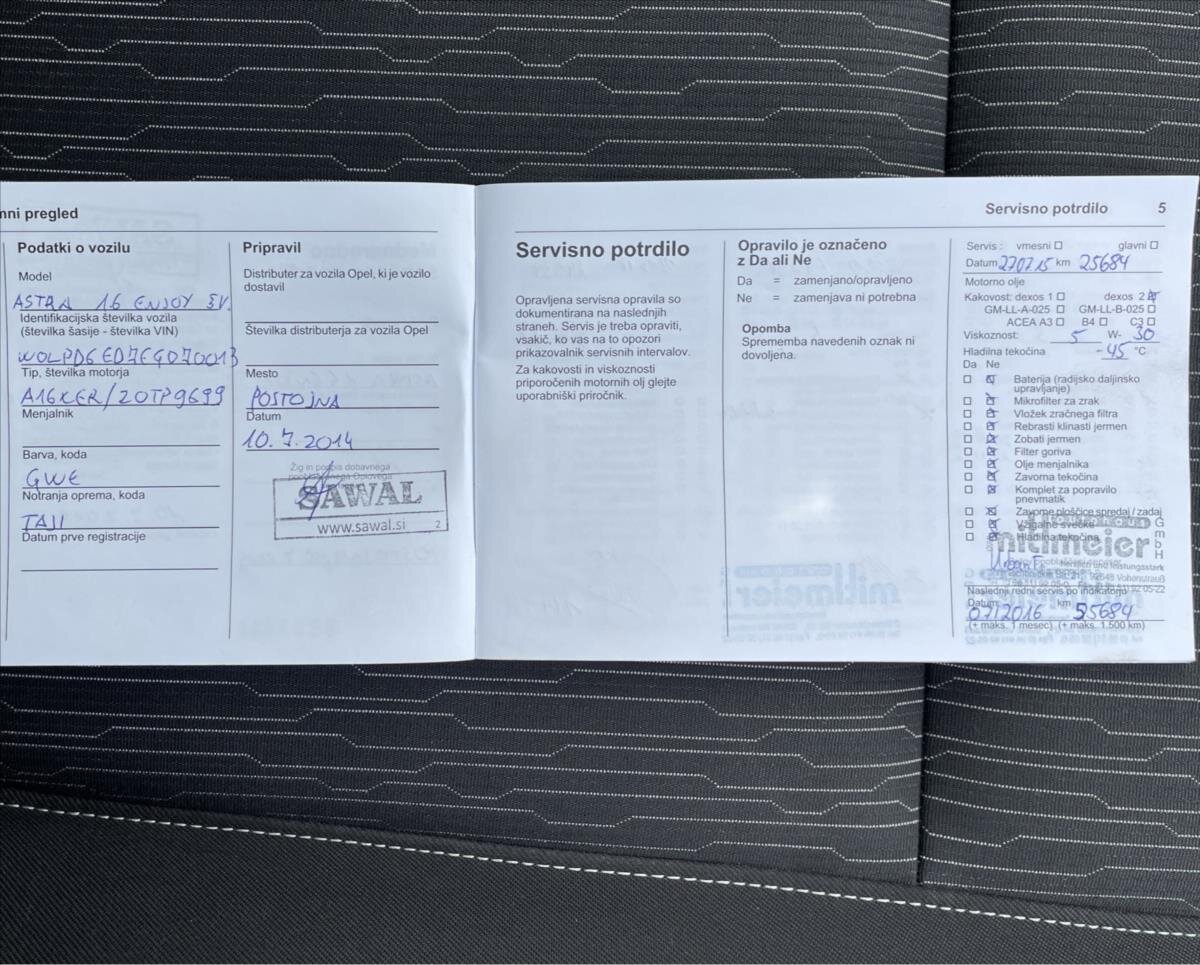 mni pregled
Podatki o vozilu
Model
ASTRA 1.6 ENJOY 5V.
Identifikacijska številka vozila
(številka šasije - številka VIN)
W0LPD6ED7EG070013
Tip, številka motorja
A16XER/20TP9699
Menjalnik
Barva, koda
GWE
Notranja oprema, koda
TAJI
Datum prve registracije
Pripravil
Distributer za vozila Opel, ki je vozilo
dostavil
Številka distributerja za vozila Opel
Mesto
POSTOJNA
Datum
10.7.2014
Žig in podpis dobavnega
SAWAL
www.sawal.si 2
Servisno potrdilo 5
Servisno potrdilo
Opravljena servisna opravila so
dokumentirana na naslednjih
straneh. Servis je treba opraviti,
vsakič, ko vas na to opozori
prikazovalnik servisnih intervalov.
Za kakovosti in viskoznosti
priporočenih motornih olj glejte
uporabniški priročnik.
Opravilo je označeno
z Da ali Ne
Da = zamenjano/opravljeno
Ne = zamenjava ni potrebna
Opomba
Sprememba navedenih oznak ni
dovoljena.
Servis: vmesni glavni
Datum 270715 km 25684
Motorno olje
Kakovost: dexos 1 dexos 2
GM-LL-A-025 GM-LL-B-025
ACEA A3 B4 C3
Viskoznost: 5 W- 30
Hladilna tekočina -45 °C
Da Ne
Baterija (radijsko daljinsko
upravljanje)
Mikrofilter za zrak
Vložek zračnega filtra
Rebrasti klinasti jermen
Zobati jermen
Filter goriva
Olje menjalnika
Zavorna tekočina
Komplet za popravilo
pnevmatik
Zavorne ploščice spredaj / zadaj
Vžigalne svečke
Hladilna tekočina
mitlmeier GmbH
92648 Vohenstrauß
Naslednji redni servis po indikatorju
Datum 07/2016 km 55684
(+ maks. 1 mesec) (+ maks. 1.500 km)